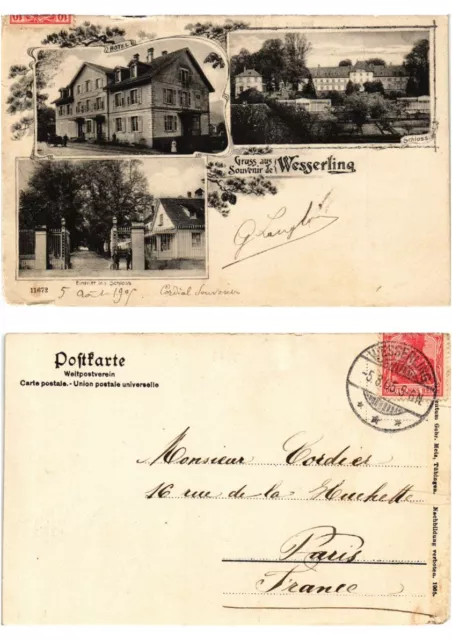 10
HOTEL
Schloss
Gruss aus
Souvenir de
Wesserling
G. Langlois
11672
Eintritt ins Schloss
5 Août 1905
Cordial Souvenir
Postkarte
Weltpostverein
Carte postale. - Union postale universelle
WESSERLING
5.8.05.5-6N.
Monsieur Cordier
16 rue de la Huchette
Paris
France
Gebr. Metz, Tübingen. Nachbildung verboten. 1904.